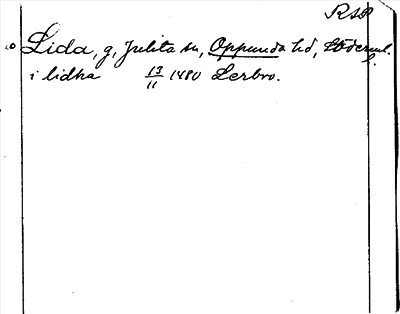 RAP
Lida, g, Julita sn, Oppunda hd, Söderml.
i lidha 13/11 1480 Lerbro.